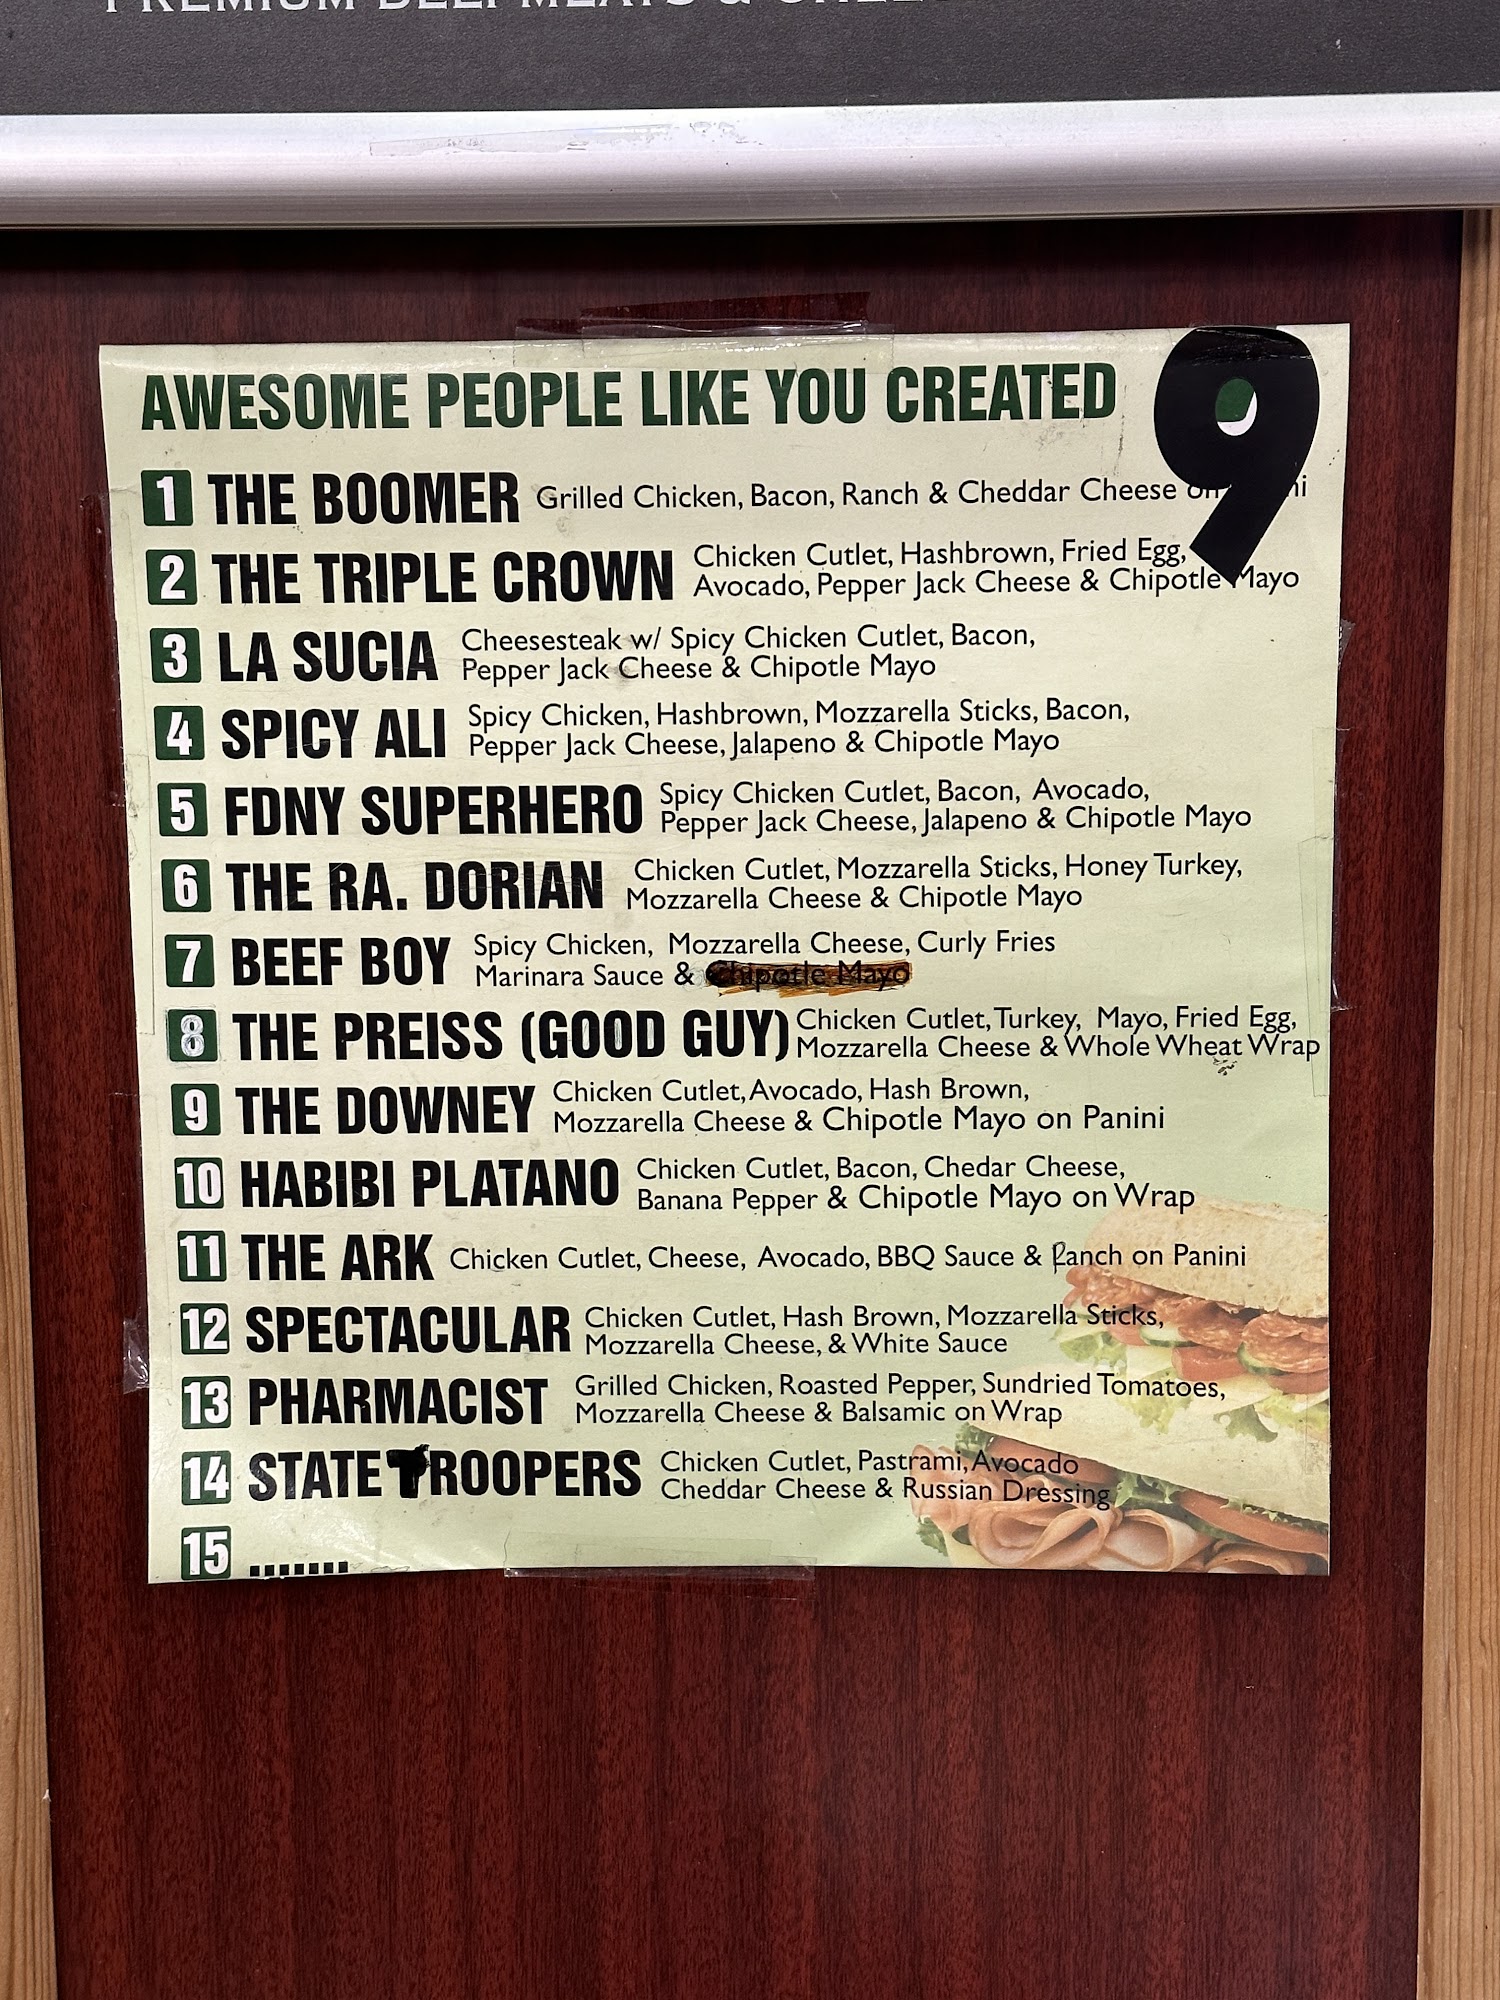 AWESOME PEOPLE LIKE YOU CREATED 9
1 THE BOOMER Grilled Chicken, Bacon, Ranch & Cheddar Cheese on
2 THE TRIPLE CROWN Chicken Cutlet, Hashbrown, Fried Egg,
Avocado, Pepper Jack Cheese & Chipotle Mayo
3 LA SUCIA Cheesesteak w/ Spicy Chicken Cutlet, Bacon,
Pepper Jack Cheese & Chipotle Mayo
4 SPICY ALI Spicy Chicken, Hashbrown, Mozzarella Sticks, Bacon,
Pepper Jack Cheese, Jalapeno & Chipotle Mayo
5 FDNY SUPERHERO Spicy Chicken Cutlet, Bacon, Avocado,
Pepper Jack Cheese, Jalapeno & Chipotle Mayo
6 THE RA. DORIAN Chicken Cutlet, Mozzarella Sticks, Honey Turkey,
Mozzarella Cheese & Chipotle Mayo
7 BEEF BOY Spicy Chicken, Mozzarella Cheese, Curly Fries
Marinara Sauce & Chipotle Mayo
8 THE PREISS (GOOD GUY) Chicken Cutlet, Turkey, Mayo, Fried Egg,
Mozzarella Cheese & Whole Wheat Wrap
9 THE DOWNEY Chicken Cutlet, Avocado, Hash Brown,
Mozzarella Cheese & Chipotle Mayo on Panini
10 HABIBI PLATANO Chicken Cutlet, Bacon, Chedar Cheese,
Banana Pepper & Chipotle Mayo on Wrap
11 THE ARK Chicken Cutlet, Cheese, Avocado, BBQ Sauce & Ranch on Panini
12 SPECTACULAR Chicken Cutlet, Hash Brown, Mozzarella Sticks,
Mozzarella Cheese, & White Sauce
13 PHARMACIST Grilled Chicken, Roasted Pepper, Sundried Tomatoes,
Mozzarella Cheese & Balsamic on Wrap
14 STATE TROOPERS Chicken Cutlet, Pastrami, Avocado
Cheddar Cheese & Russian Dressing
15 .......